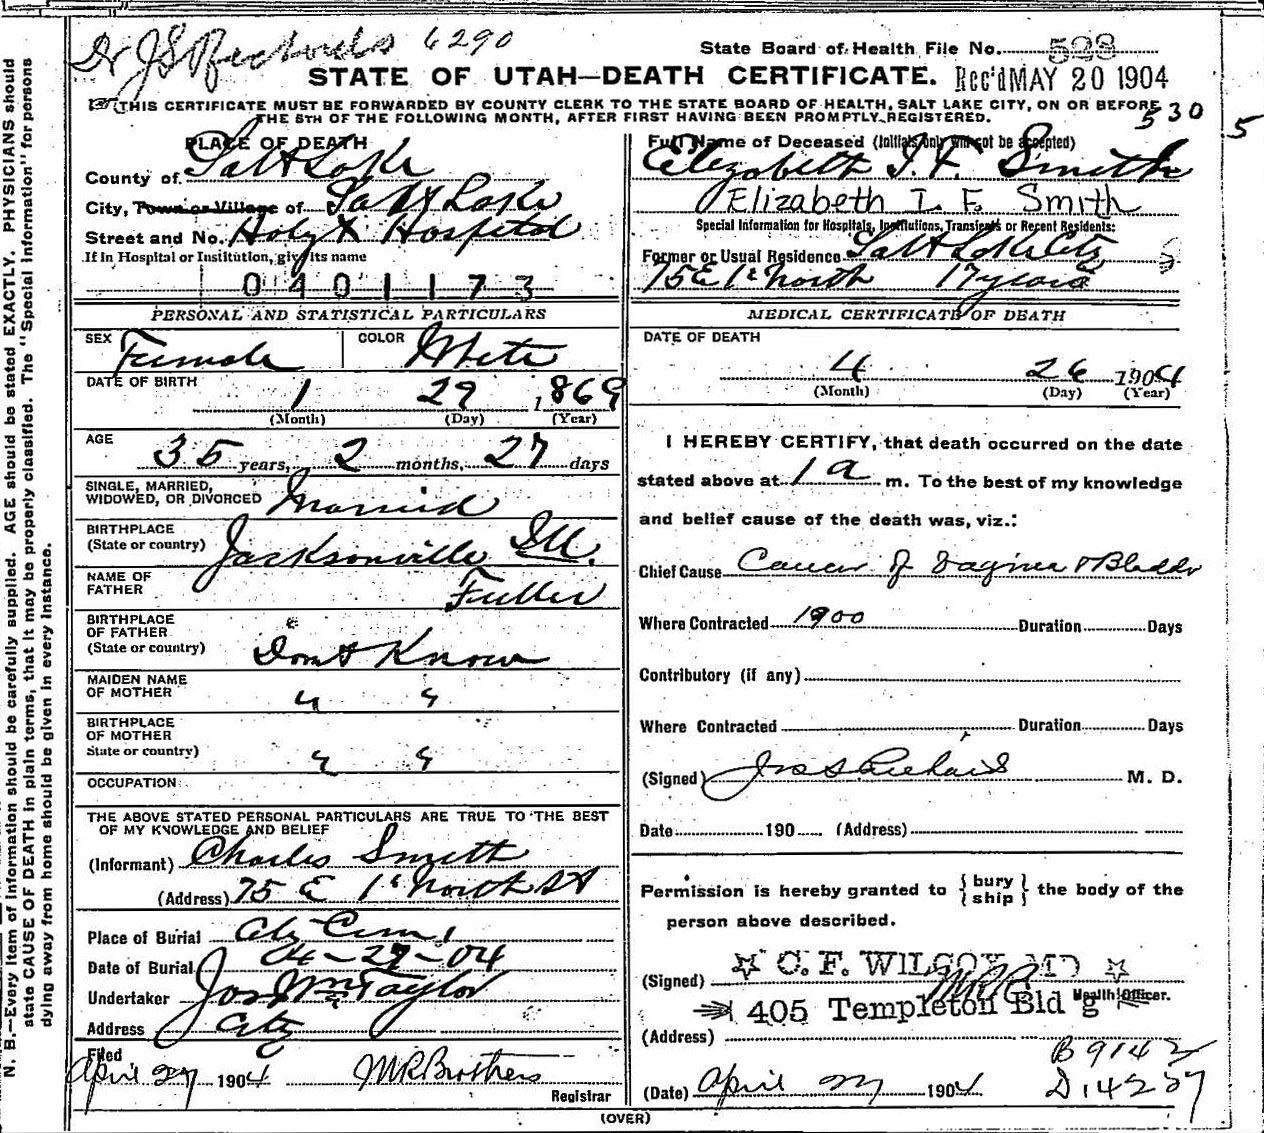 Dr J S Richards 6290
State Board of Health File No. 528
STATE OF UTAH—DEATH CERTIFICATE. Rec'd MAY 20 1904
THIS CERTIFICATE MUST BE FORWARDED BY COUNTY CLERK TO THE STATE BOARD OF HEALTH, SALT LAKE CITY, ON OR BEFORE
THE 5TH OF THE FOLLOWING MONTH, AFTER FIRST HAVING BEEN PROMPTLY REGISTERED.
530 5
N. B.—Every item of information should be carefully supplied. AGE should be stated EXACTLY. PHYSICIANS should
state CAUSE OF DEATH in plain terms, that it may be properly classified. The "Special Information" for persons
dying away from home should be given in every instance.
PLACE OF DEATH
County of Salt Lake
City, Town or Village of Salt Lake
Street and No. Holy X Hospital
If in Hospital or Institution, give its name
0401173
PERSONAL AND STATISTICAL PARTICULARS
SEX Female COLOR White
DATE OF BIRTH
1 29 1869
(Month) (Day) (Year)
AGE
35 years, 2 months, 27 days
SINGLE, MARRIED,
WIDOWED, OR DIVORCED Married
BIRTHPLACE
(State or country) Jacksonville Ill.
NAME OF
FATHER Fuller
BIRTHPLACE
OF FATHER
(State or country) Dont Know
MAIDEN NAME
OF MOTHER " "
BIRTHPLACE
OF MOTHER
State or country) " "
OCCUPATION
THE ABOVE STATED PERSONAL PARTICULARS ARE TRUE TO THE BEST
OF MY KNOWLEDGE AND BELIEF
(Informant) Charles Smith
(Address) 75 E 1st North St
Place of Burial City Cem.
Date of Burial 04-27-04
Undertaker Jos Wm Taylor
Address City
Filed
April 27 1904 M R Brothers
Registrar
Full Name of Deceased (Initials only will not be accepted)
Elizabeth I. F. Smith
Elizabeth I F Smith
Special Information for Hospitals, Institutions, Transients or Recent Residents:
Former or Usual Residence Salt Lake City
75 E 1st North 17 years
MEDICAL CERTIFICATE OF DEATH
DATE OF DEATH
4 26 1904
(Month) (Day) (Year)
I HEREBY CERTIFY, that death occurred on the date
stated above at 1 a m. To the best of my knowledge
and belief cause of the death was, viz.:
Chief Cause Cancer of Vagina & Bladder
Where Contracted 1900 Duration Days
Contributory (if any)
Where Contracted Duration Days
(Signed) Jos S Richards M. D.
Date 190 (Address)
Permission is hereby granted to {bury
ship} the body of the
person above described.
(Signed) C. F. WILCOX MD
Health Officer.
405 Templeton Bld'g
(Address)
B 9142
(Date) April 27 1904 D. 14227
(OVER)